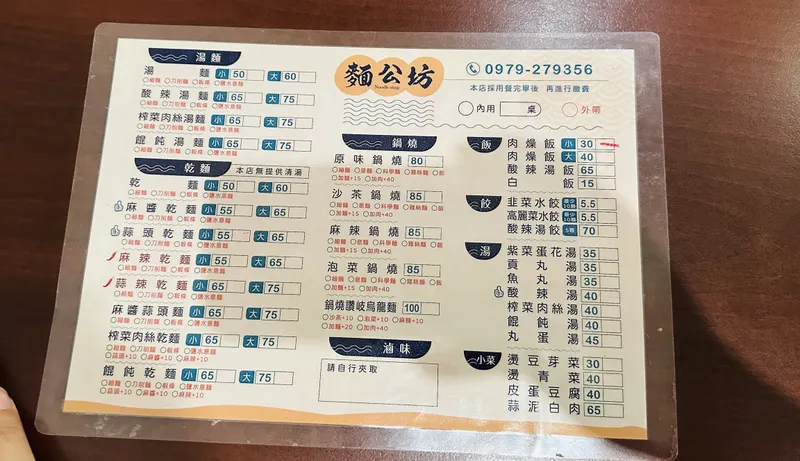 湯麵
湯麵 小 50 大 60
○細麵 ○刀削麵 ○粄條 ○鹽水意麵
酸辣湯麵 小 65 大 75
○細麵 ○刀削麵 ○粄條 ○鹽水意麵
榨菜肉絲湯麵 小 65 大 75
○細麵 ○刀削麵 ○粄條 ○鹽水意麵
餛飩湯麵 小 65 大 75
○細麵 ○刀削麵 ○粄條 ○鹽水意麵
乾麵 本店無提供清湯
乾麵 小 50 大 60
○細麵 ○刀削麵 ○粄條 ○鹽水意麵
麻醬乾麵 小 55 大 65
○細麵 ○刀削麵 ○粄條 ○鹽水意麵
蒜頭乾麵 小 55 大 65
○細麵 ○刀削麵 ○粄條 ○鹽水意麵
麻辣乾麵 小 55 大 65
○細麵 ○刀削麵 ○粄條 ○鹽水意麵
蒜辣乾麵 小 65 大 75
○細麵 ○刀削麵 ○粄條 ○鹽水意麵
麻醬蒜頭麵 小 65 大 75
○細麵 ○刀削麵 ○粄條 ○鹽水意麵
榨菜肉絲乾麵 小 65 大 75
○細麵 ○刀削麵 ○粄條 ○鹽水意麵
○蒜頭+10 ○麻醬+10 ○麻辣+10
餛飩乾麵 小 65 大 75
○細麵 ○刀削麵 ○粄條 ○鹽水意麵
○蒜頭+10 ○麻醬+10 ○麻辣+10
麵公坊
Noodle shop
0979-279356
本店採用餐完畢後 再進行繳費
○內用 桌 ○外帶
鍋燒
原味鍋燒 80
○細麵 ○意麵 ○科學麵 ○雞絲麵 ○飯
○加麵+15 ○加肉+40
沙茶鍋燒 85
○細麵 ○意麵 ○科學麵 ○雞絲麵 ○飯
○加麵+15 ○加肉+40
麻辣鍋燒 85
○細麵 ○意麵 ○科學麵 ○雞絲麵 ○飯
○加麵+15 ○加肉+40
泡菜鍋燒 85
○細麵 ○意麵 ○科學麵 ○雞絲麵 ○飯
○加麵+15 ○加肉+40
鍋燒讚岐烏龍麵 100
○沙茶+10 ○泡菜+10 ○麻辣+10
○加麵+20 ○加肉+40
滷味
請自行夾取
飯
肉燥飯 小 30
肉燥飯 大 40
酸辣湯飯 65
白飯 15
餃
韭菜水餃 最少10顆 5.5
高麗菜水餃 最少10顆 5.5
酸辣湯餃 70
湯
紫菜蛋花湯 35
貢丸湯 35
魚丸湯 35
酸辣湯 40
榨菜肉絲湯 40
餛飩湯 40
丸蛋湯 45
小菜
燙豆芽菜 30
燙青菜 40
皮蛋豆腐 40
蒜泥白肉 65